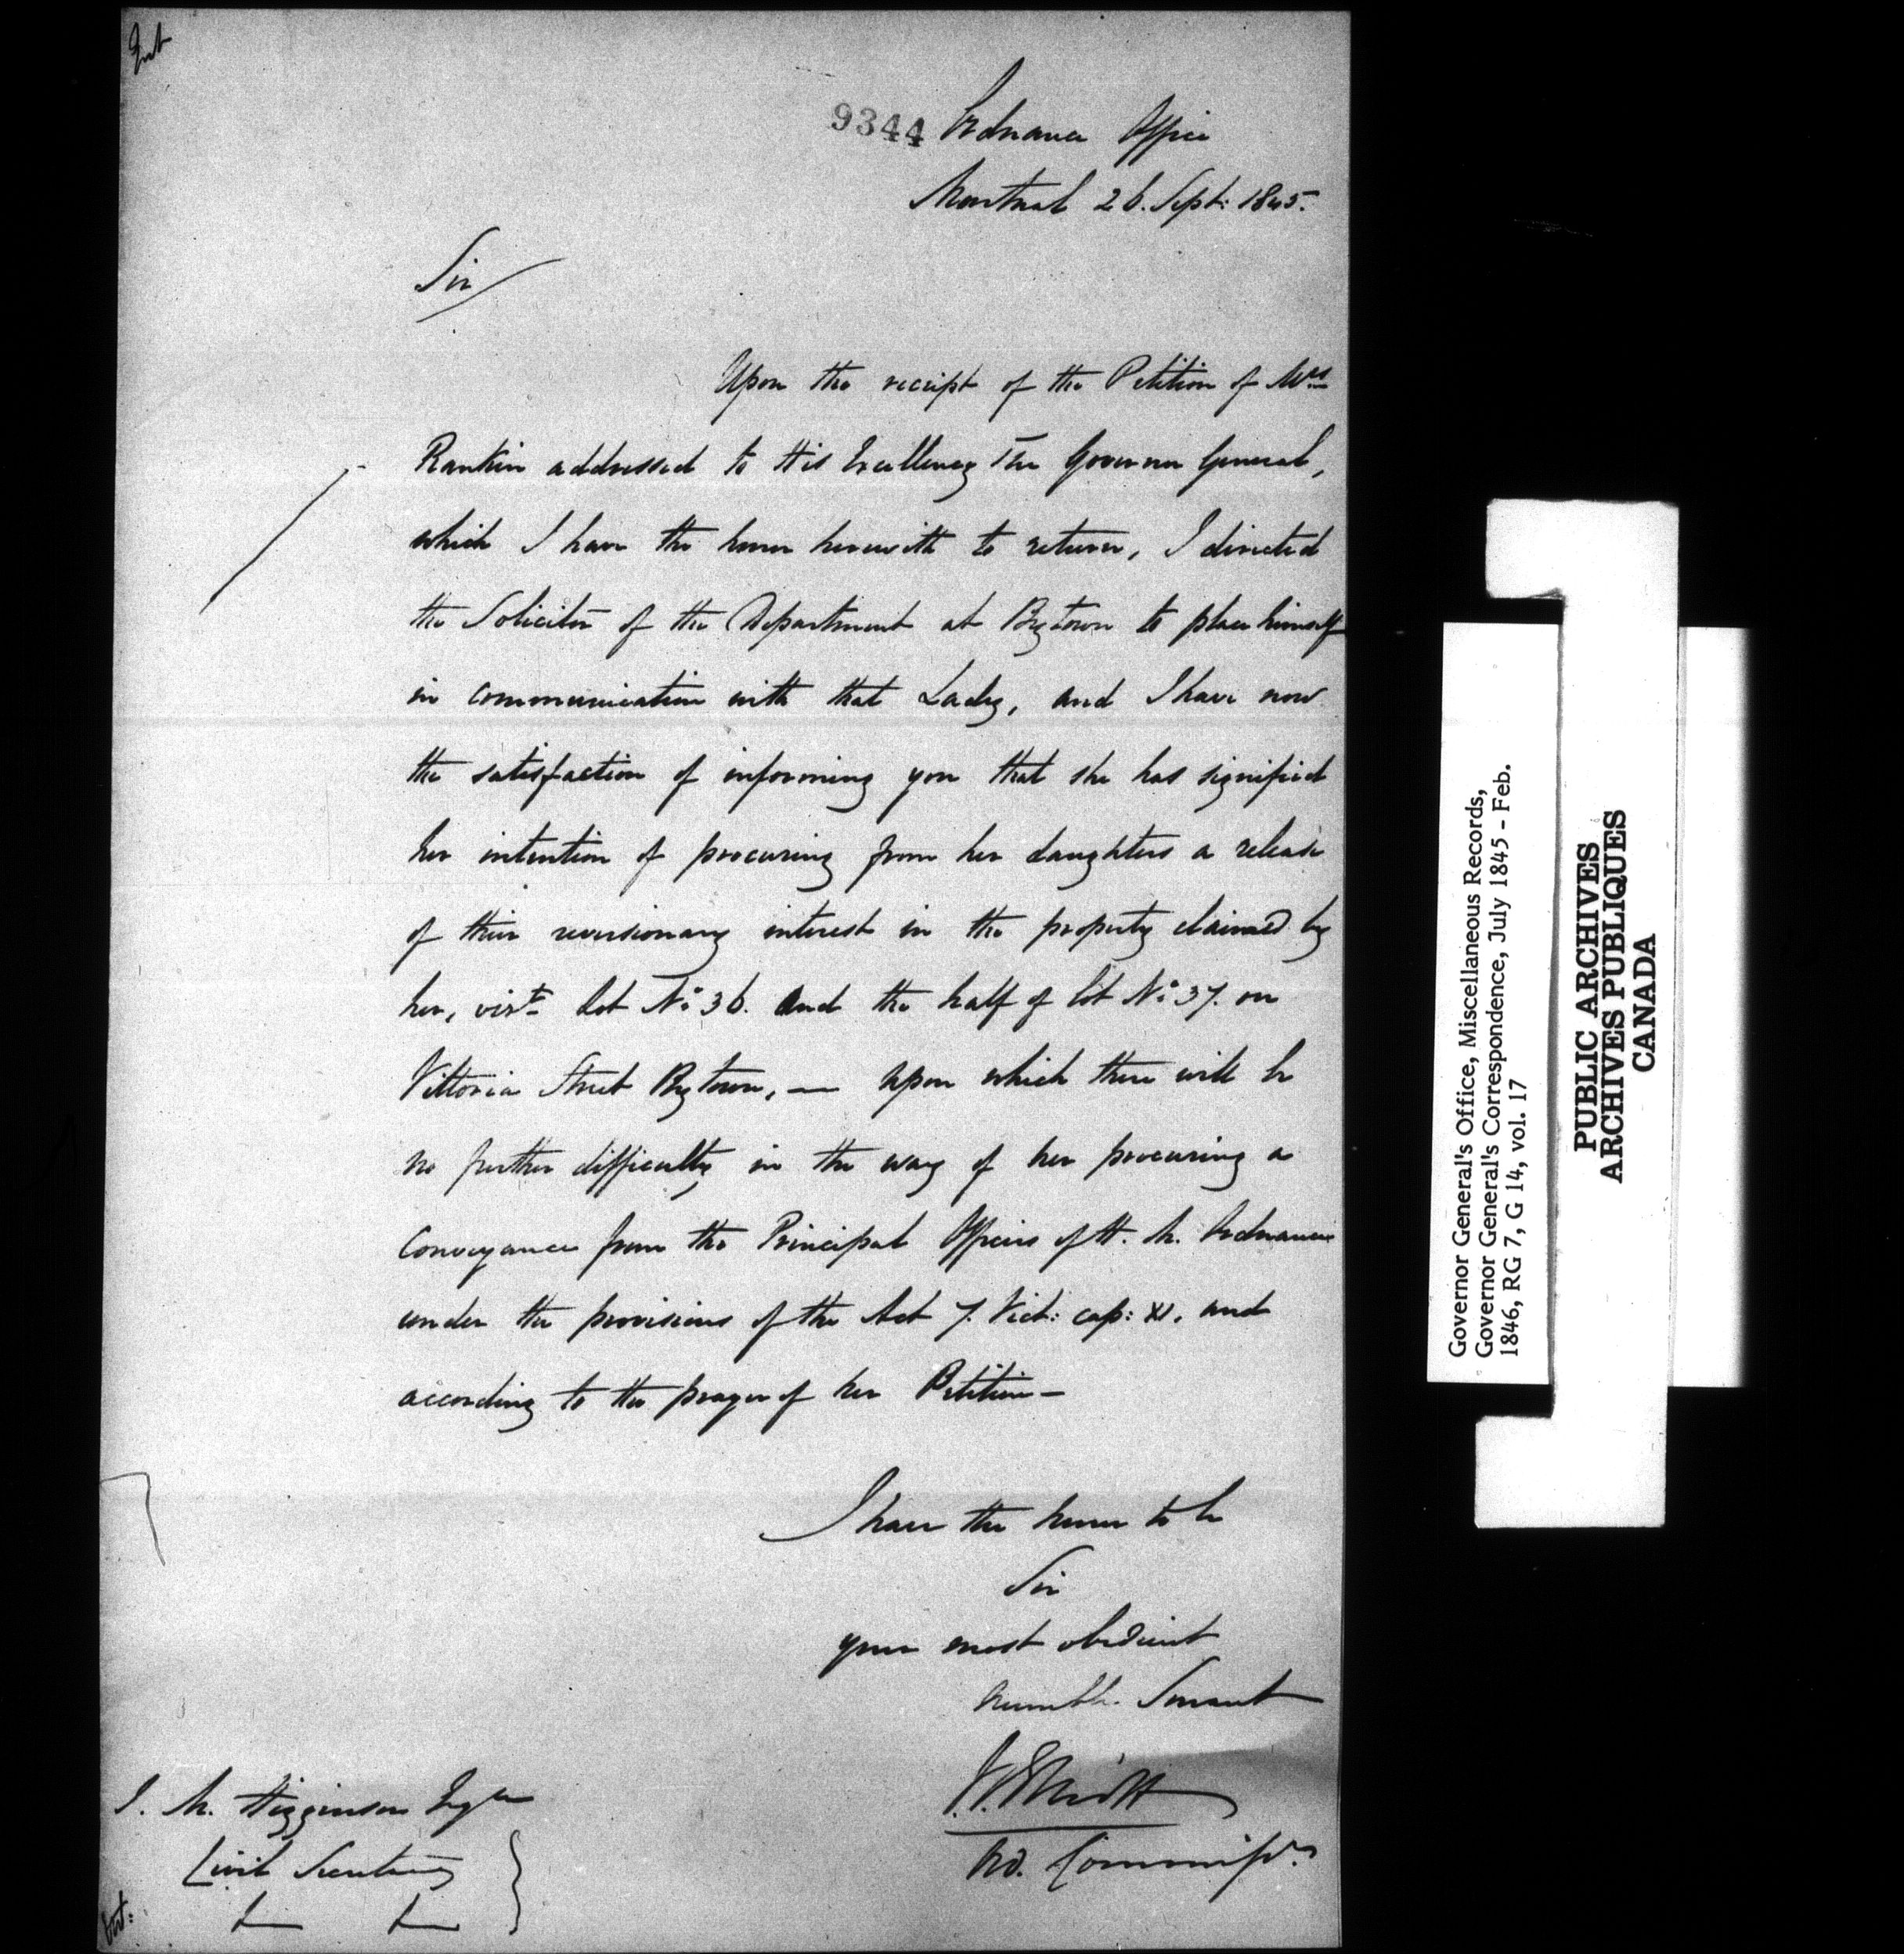 Ent
9344 Ordnance Office
Montreal 26. Sept: 1845.
Sir
Upon the receipt of the Petition of Mrs
Rankin addressed to His Excellency The Governor General,
which I have the honor herewith to return, I directed
the Solicitor of the Department at Bytown to place himself
in communication with that Lady, and I have now
the satisfaction of informing you that she has signified
her intention of procuring from her daughters a release
of their reversionary interest in the property claimed by
her, vizt Lot No 36. and the half of lot No 37. on
Vittoria Street Bytown, — upon which there will be
no further difficulty in the way of her procuring a
Conveyance from the Principal Officers of H. M. Ordnance
under the provisions of the Act 7. Vict: cap: XI. and
according to the prayer of her Petition —
I have the honor to be
Sir
your most obedient
humble Servant
J. M. Higginson Esqre
Civil Secretary
Governor General's Office, Miscellaneous Records,
Governor General's Correspondence, July 1845 - Feb.
1846, RG 7, G 14, vol. 17
PUBLIC ARCHIVES
ARCHIVES PUBLIQUES
CANADA